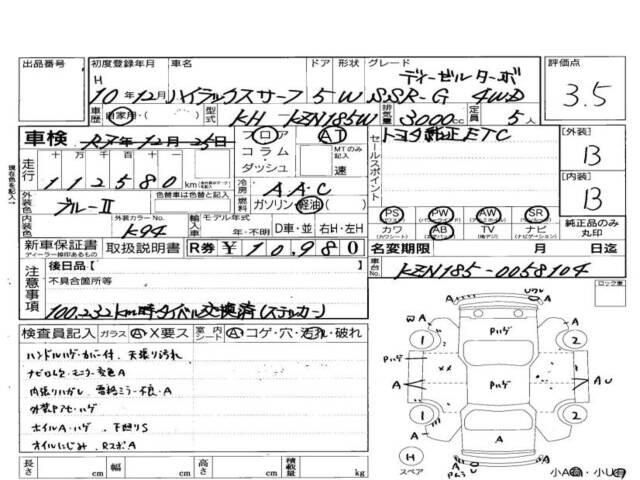 出品番号 初度登録年月 車名 ドア 形状 グレード 評価点
H ディーゼルターボ
10年12月 ハイラックスサーフ 5 W SSR-G 4WD 3.5
車歴 自家用 型式 KH - KZN185W 排気量 3000cc 定員 5人
車検 R7年12月25日 フロア AT トヨタ純正ETC [外装]
走行 十 万 千 百 十 一 コラム・ダッシュ MTのみ記入 速 セールスポイント B
112580 km 冷房 AAC [内装]
外装色 ブルーII 色替車は色替と記入 燃料 ガソリン 軽油 B
内装色 外装カラーNo. K94 輸入車 モデル年式 年・不明 D車・並 右H・左H PS PW AW SR 純正品のみ丸印
カワ AB TV ナビ
新車保証書 取扱説明書 R券 ¥10,980 名変期限 月 日迄
ディーラー捺印があるもの
注意事項 後日品[ 車台No. KZN185-0058104
不具合箇所等 ロック車
100,232km時タイベル交換済(ステッカー)
検査員記入 ガラス A・X要ス 室内シート A・コゲ・穴・汚れ・破れ
ハンドルハゲ・カバー付、天張り汚れ
ナビロム欠・モニター変色A
内張りハガレ、電格ミラー不良・A
外装Pアセ・ハゲ
ホイルA・ハゲ、下廻りS
オイルにじみ、RスポA
長さ cm 幅 cm 高さ cm 積載量 kg
現在色を記入
A U
W A Pハゲ A
1 2
Pハゲ
A Pハゲ A U
1 2
A
H
スペア
A
小A・小U